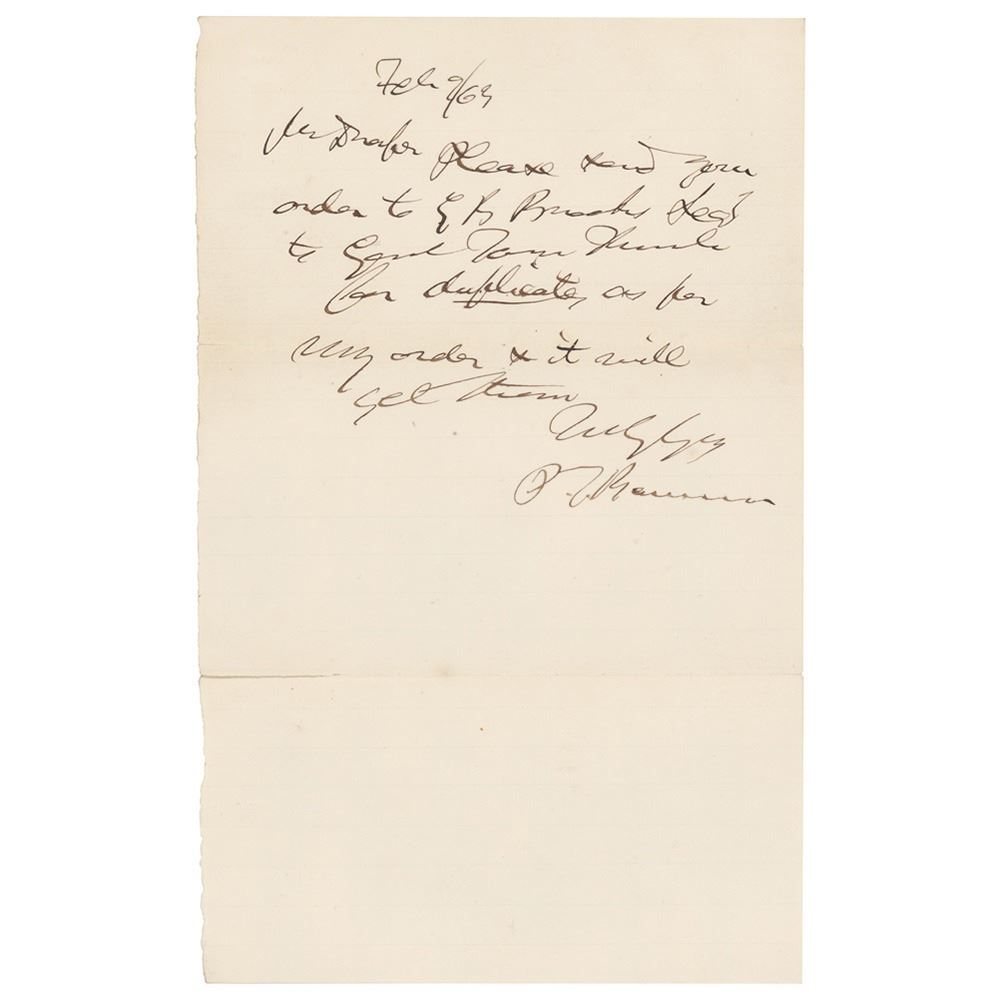 Feb 9/63
Mr Draper Please send your
order to E
to Genl Tom Thumb
for duplicates, as per
my order & it will
get them
Truly Yrs
P. T. Barnum